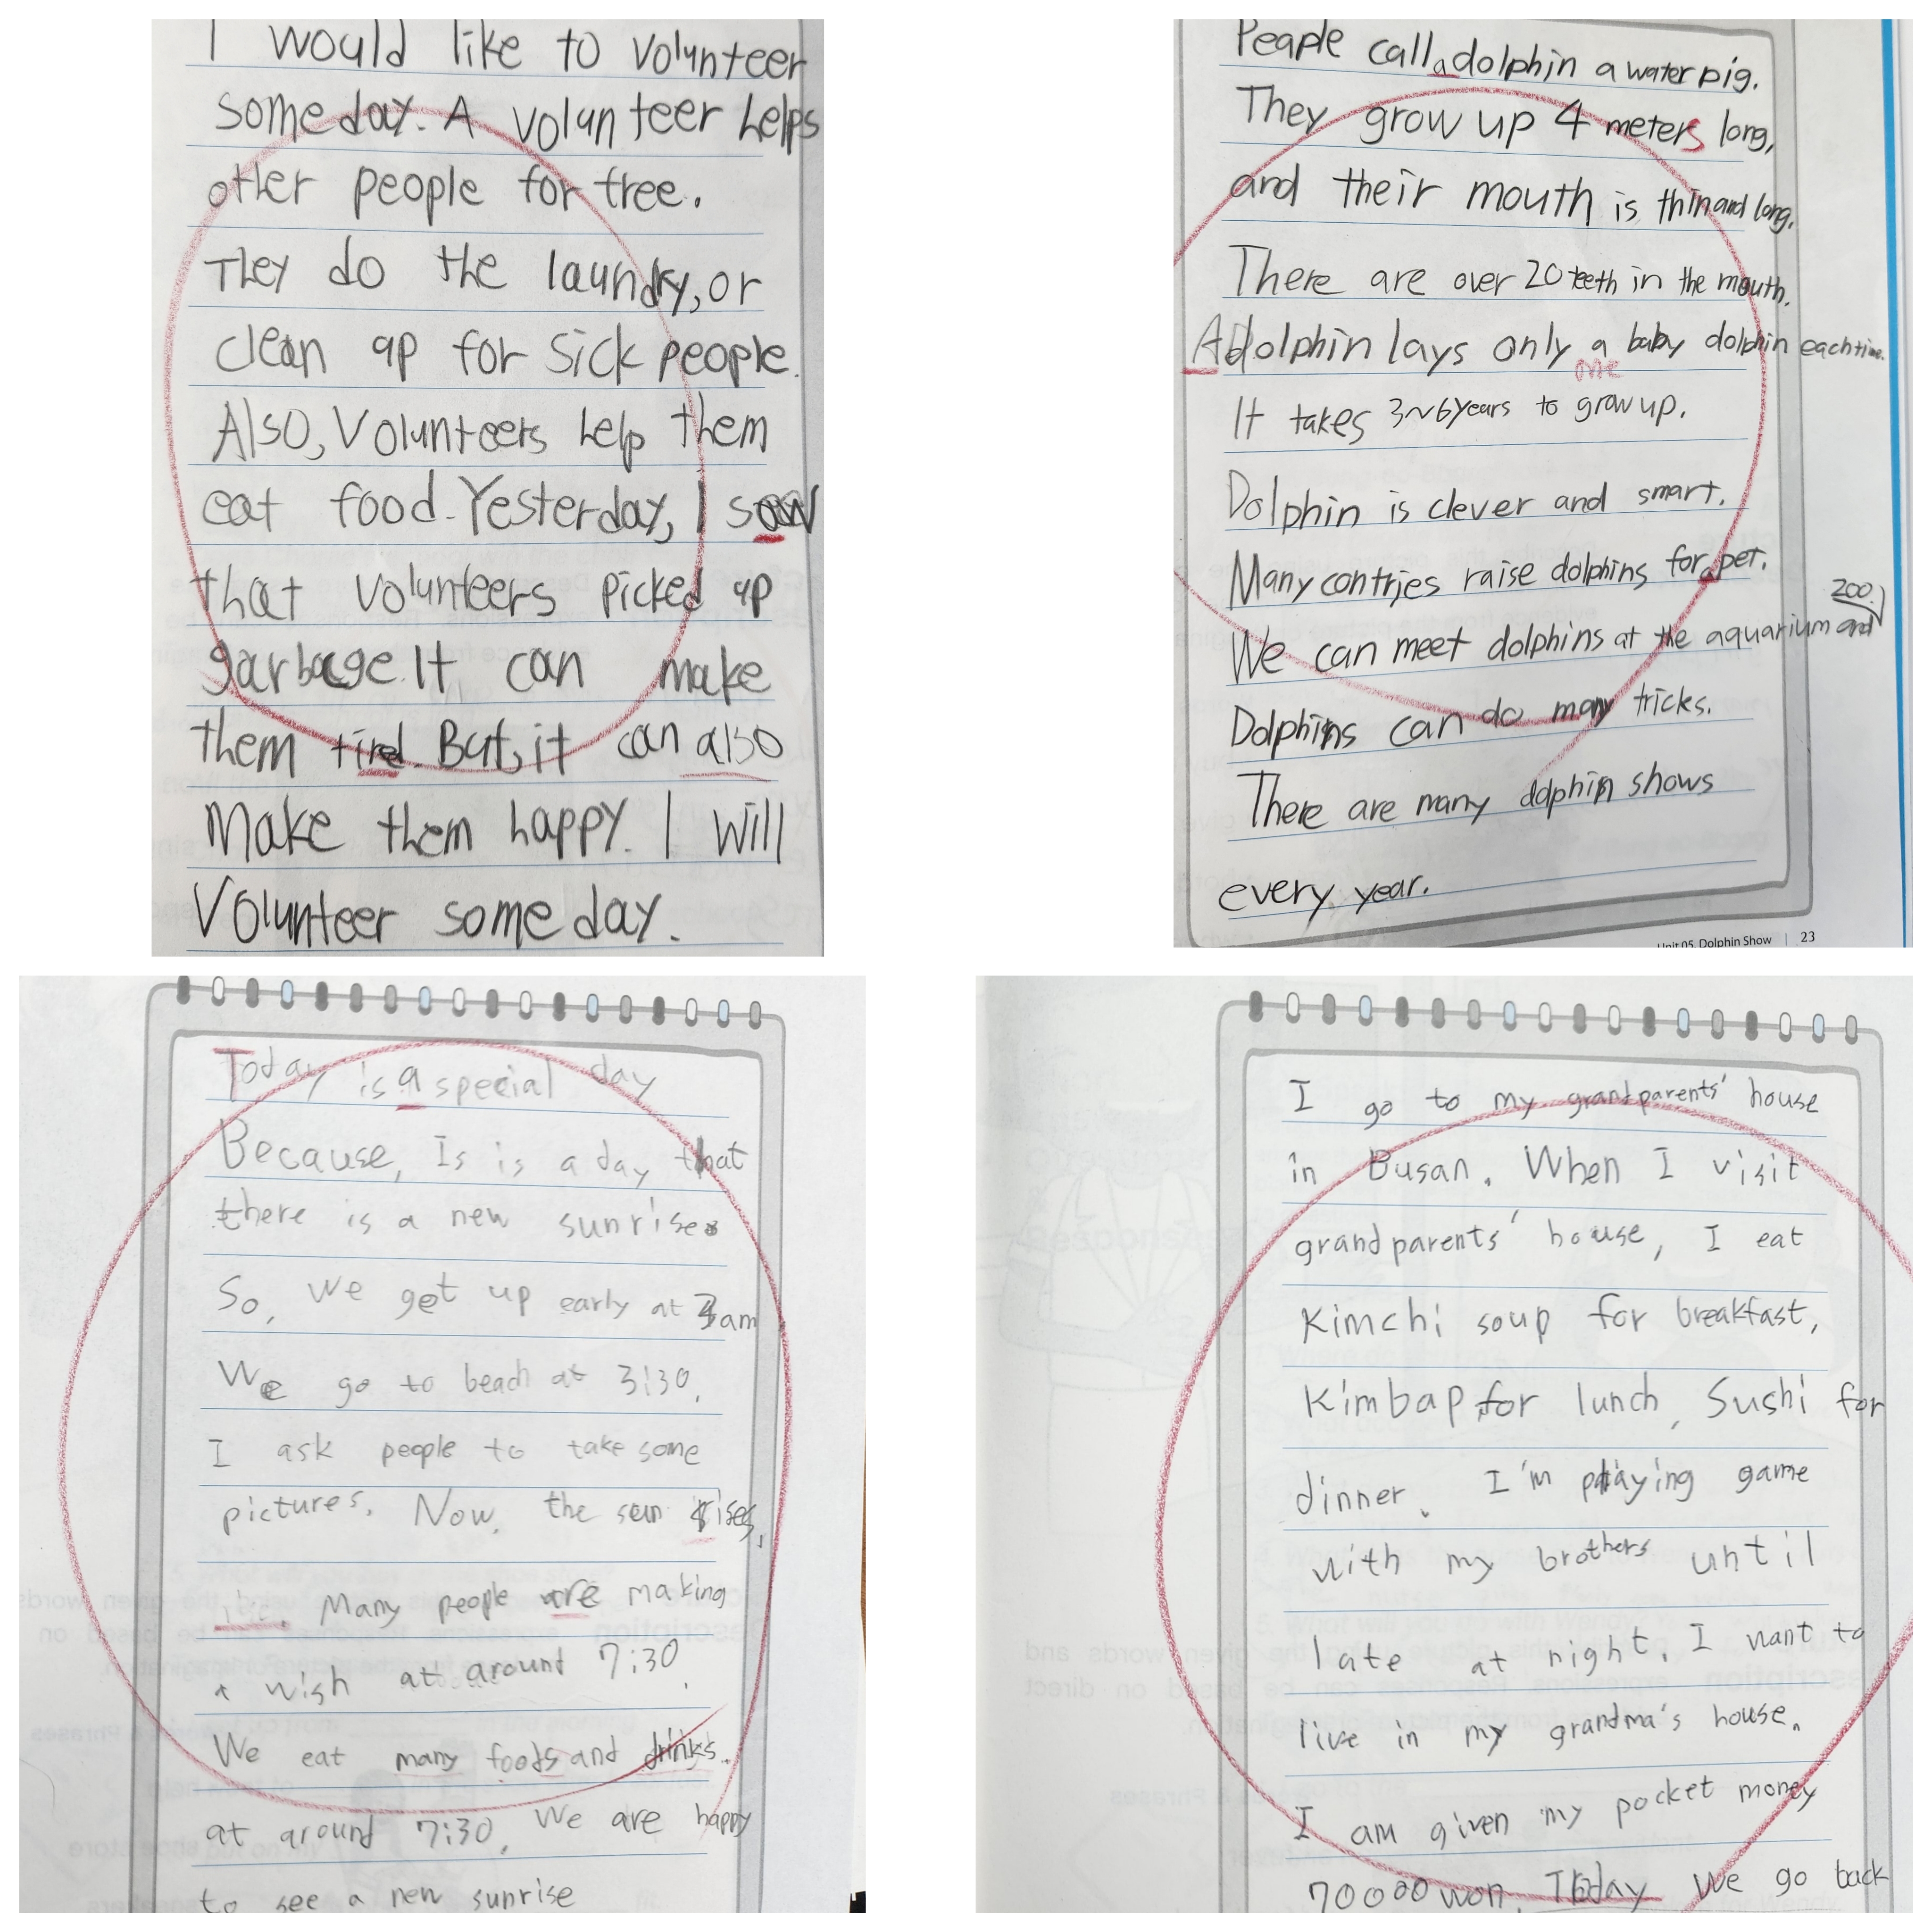 I would like to volunteer
someday. A volunteer helps
other people for free.
They do the laundry, or
clean up for sick people.
Also, Volunteers help them
eat food. Yesterday, I saw
that volunteers picked up
garbage. It can make
them tired. But, it can also
make them happy. I will
Volunteer someday.
Peaple call a dolphin a water pig.
They grow up 4 meters long,
and their mouth is thin and long.
There are over 20 teeth in the mouth.
A dolphin lays only a baby dolphin each time.
one
It takes 3~6years to grow up.
Dolphin is clever and smart.
Many contries raise dolphins for a pet.
zoo.
We can meet dolphins at the aquarium and
Dolphins can do many tricks.
There are many dolphin shows
every year.
Unit 05. Dolphin Show | 23
Today is a special day
Because, Is is a day that
there is a new sunrise.
So, we get up early at 3am
We go to beach at 3:30.
I ask people to take some
pictures. Now, the sun rises,
Many people are making
a wish at around 7:30.
We eat many foods and drinks.
at around 7:30. We are happy
to see a new sunrise
I go to my grandparents' house
in Busan. When I visit
grandparents' house, I eat
Kimchi soup for breakfast,
Kimbap for lunch, Sushi for
dinner. I'm playing game
with my brothers until
late at night. I want to
live in my grandma's house.
I am given my pocket money
70000 won. Today We go back